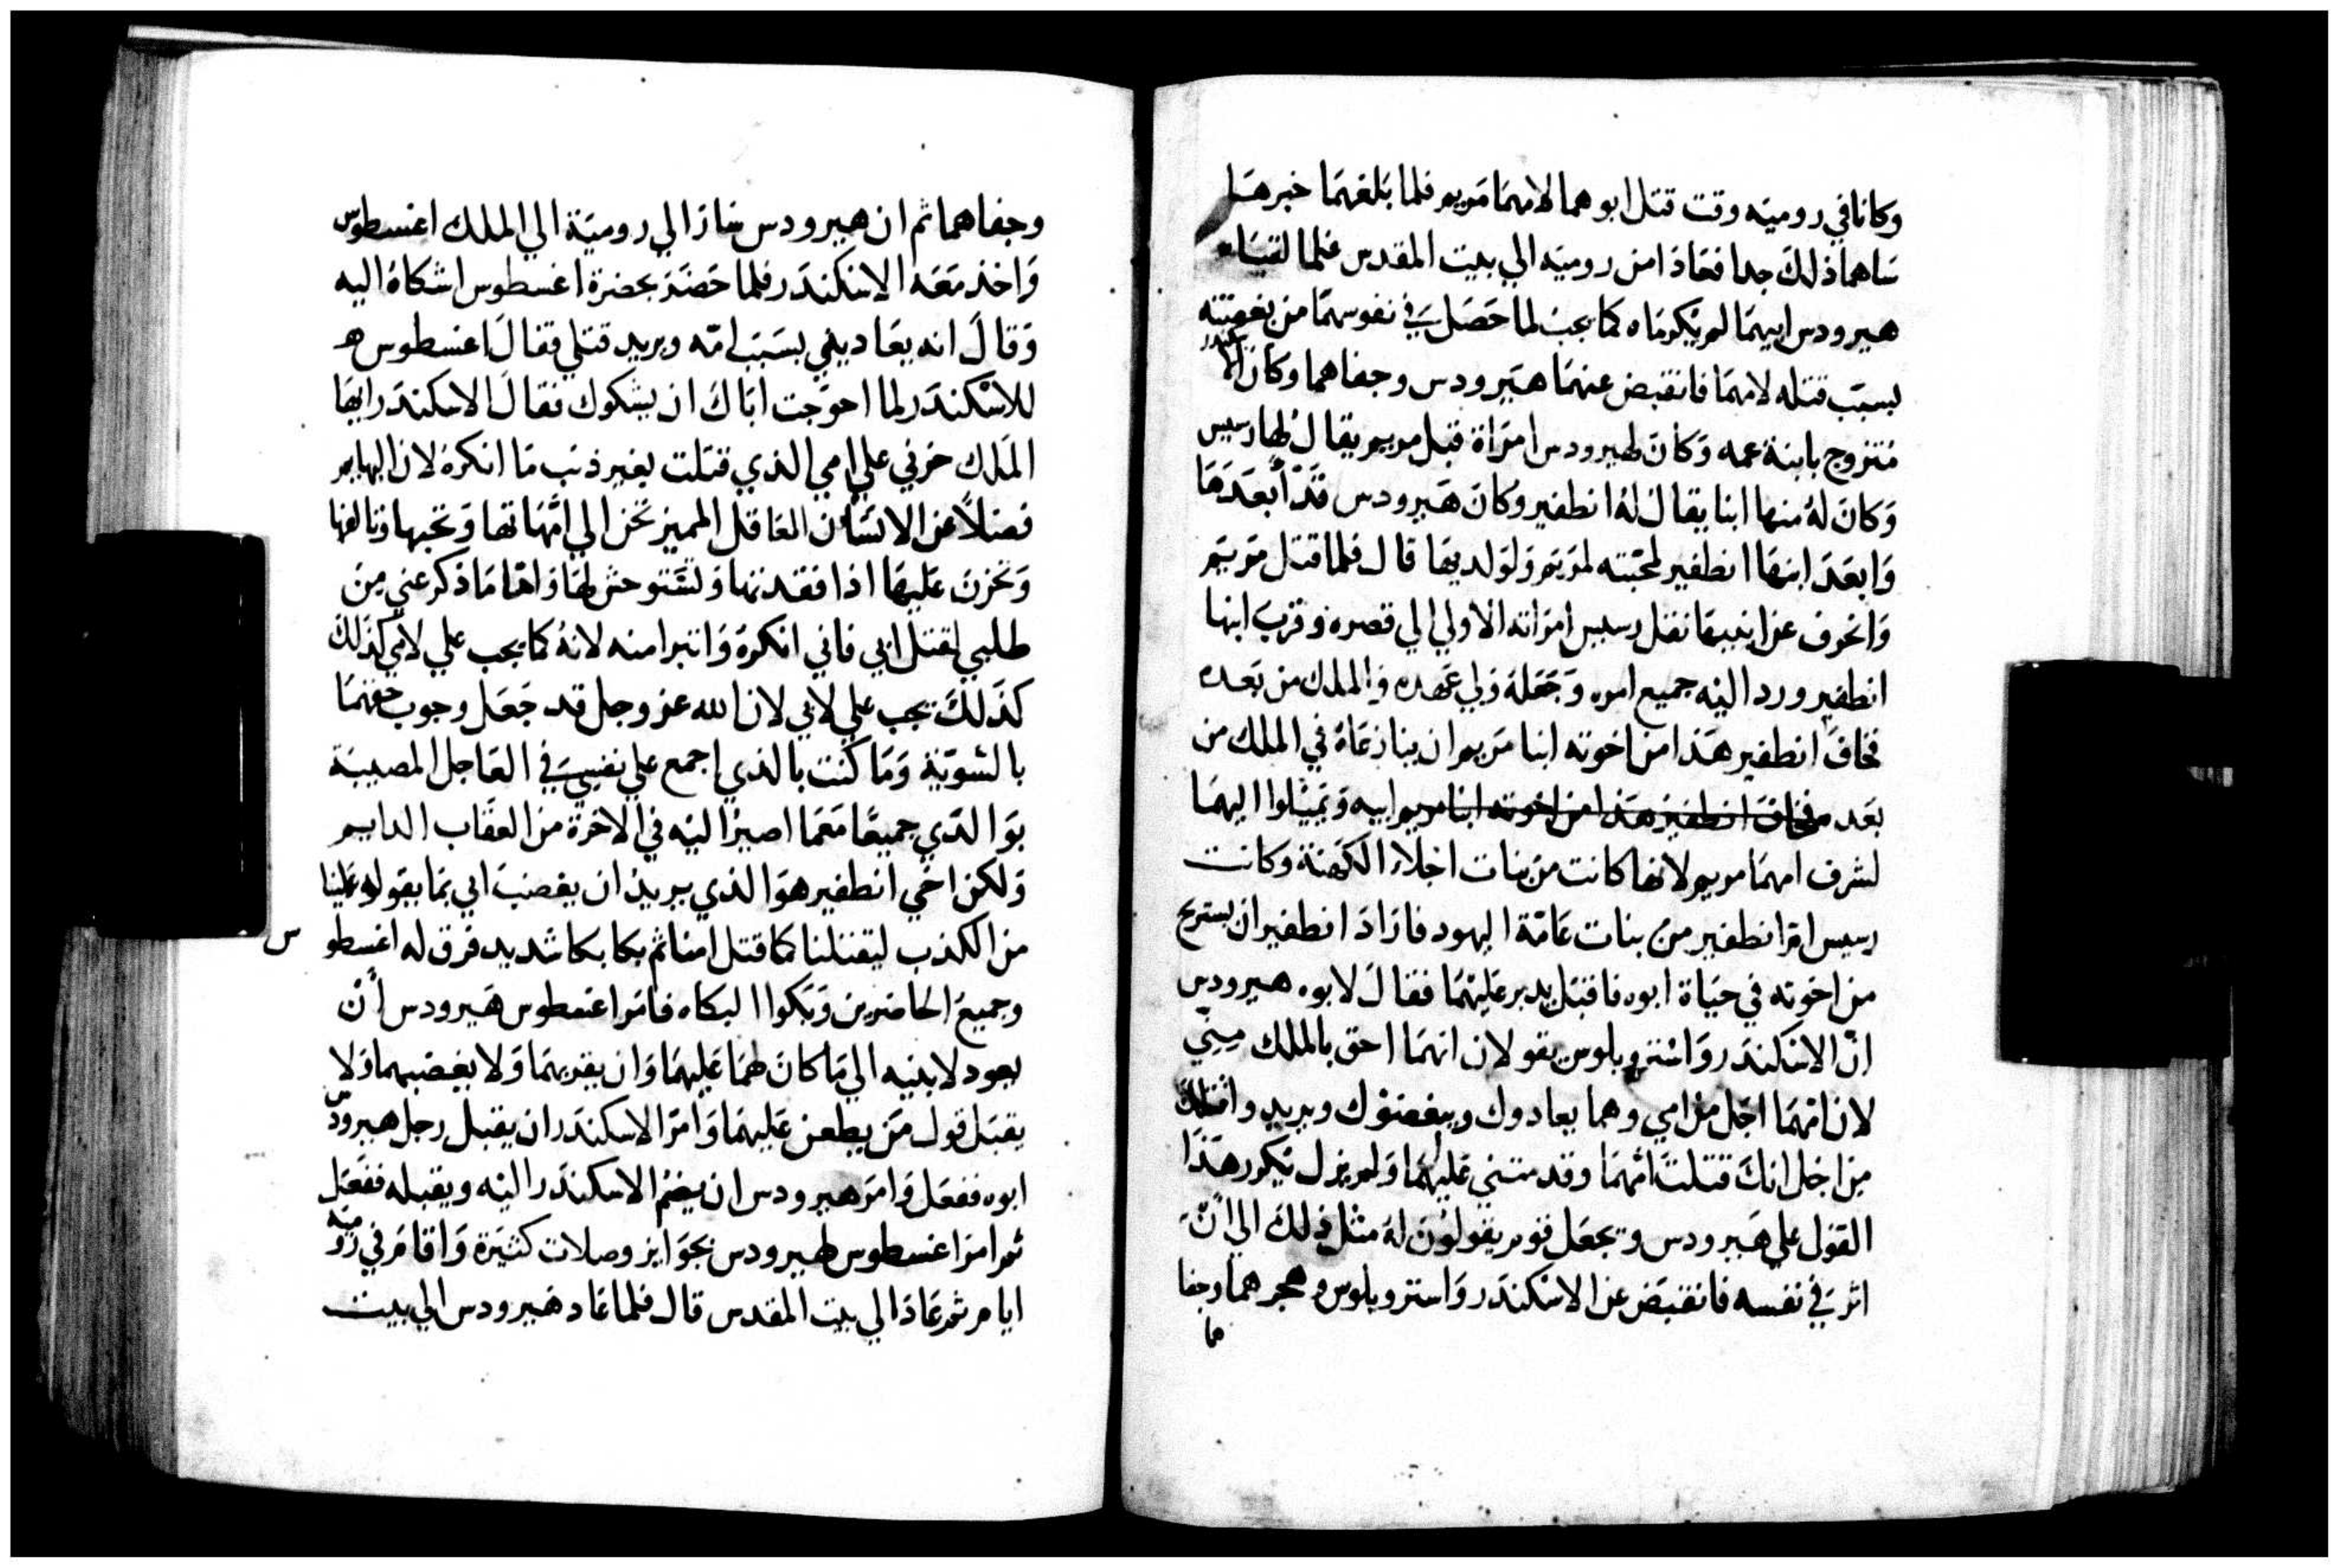 وكانا في روميه وقت قتل ابوهما لامهما مريم فلما بلغهما خبرها
ساهما ذلك جدا فعادا من روميه الي بيت المقدس فلما لقيا
هيرودس ابيهما لم يكرماه كما يجب لما حصل في نفوسهما من بغضته
بسبب قتله لامهما فانقبض عنهما هيرودس وجفاهما وكان الاسكندر
متزوج بابنة عمه وكان لهيرودس امراة قبل مريم يقال لها رسيس
وكان له منها ابنا يقال له انطفير وكان هيرودس قد أبعدها
وابعد ابنها انطفير لمحبته لمريم ولولديها قال فلما قتل مريم
وانحرف عن ابنيها نقل رسيس امراته الاولي الي قصره وقرب ابنها
انطفير ورد اليه جميع امره وجعله ولي عهده في الملك من بعده
فخاف انطفير هذا من اخوته ابنا مريم ان ينازعاه في الملك من
بعد فخاف انطفير هذا من اخوته ابنا مريم ابيه وتميلوا اليهما
لشرف امهما مريم لانها كانت من بنات اجلاء الكهنة وكانت
رسيس ام انطفير من بنات عامة اليهود فاراد انطفير ان يستريح
من اخوته في حياة ابوه فاقبل يدبر عليهما فقال لابوه هيرودس
انّ الاسكندر واسترو بلوس يقولان انهما احق بالملك منّي
لان امهما اجل من امي وهما يعادوك ويبغضوك ويريدوا قتلك
من اجل انك قتلت امهما وقد متني عليهما ولم يزل يكرر هذا
القول علي هيرودس ويجعل قوم يقولون له مثل ذلك الي أنّ
اثر في نفسه فانقبض عن الاسكندر واسترو بلوس وهجرهما وجفا
ما
وجفاهما ثم ان هيرودس سار الي روميّة الي الملك اغسطوس
واخذ معه الاسكندر فلما حضر بحضرة اغسطوس اشكاه اليه
وقال انه يعاديني بسبب امّه ويريد قتلي فقال اغسطوس هـ
للاسكندر لما احوجت اباك ان يشكوك فقال الاسكندر ايها
الملك حزني علي امي الذي قتلت بغير ذنب ما انكره لان البهايم
فضلاً عن الانسان العاقل المميز تحن الي امّهاتها وتحبها وتالفها
وتحزن عليها اذا فقدتها وتستوحش لها واما ما ذكر عني من
طلبي لقتل ابي فاني انكره واتبرا منه لانه كما يجب علي لامي كذلك
كذلك يجب علي لابي لان الله عز وجل قد جعل وجوب حقهما
بالسّويّة وما كنت بالذي اجمع علي نفسي في العاجل المصيبة
بوالدّي جميعًا معما اصير اليه في الاخرة من العقاب الدايم
ولكن اخي انطفير هو الذي يريد ان يغضب ابي بما يقوله علينا
من الكذب ليقتلنا كما قتل امنا ثم بكا بكا شديد فرق له اغسطو س
وجميع الحاضرين وبكوا البكاه فامر اغسطوس هيرودس أن
يعود لابنيه الي ما كان لهما عليهما وان يقربهما ولا يغضبهما ولا
يقبل قول من يطعن عليهما وامر الاسكندر ان يقبل رجل هيرودس
ابوه ففعل وامر هيرودس ان يضم الاسكندر اليه ويقبله ففعل
ثم امر اغسطوس لهيرودس بجوايز وصلات كثيرة واقام في روميه
ايام ثم عاد الي بيت المقدس قال فلما عاد هيرودس الي بيت